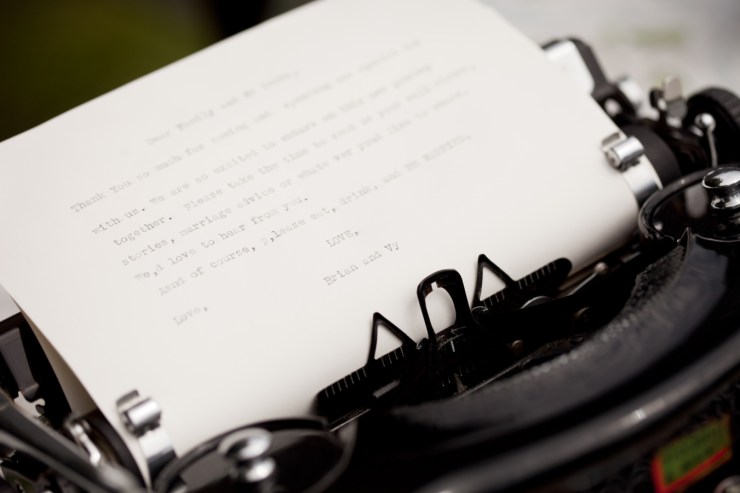 Dear Family and
Thank You so much for coming and spending
with us. We are so excited to embark on this new journey
together. Please take the time to
stories, marriage advice or whate ver youd like to share.
We,d love to hear from you.
Aand of course, p,lease eat, drink, and BE MARRIED.
LOVE,
Brian and Vy
Love,